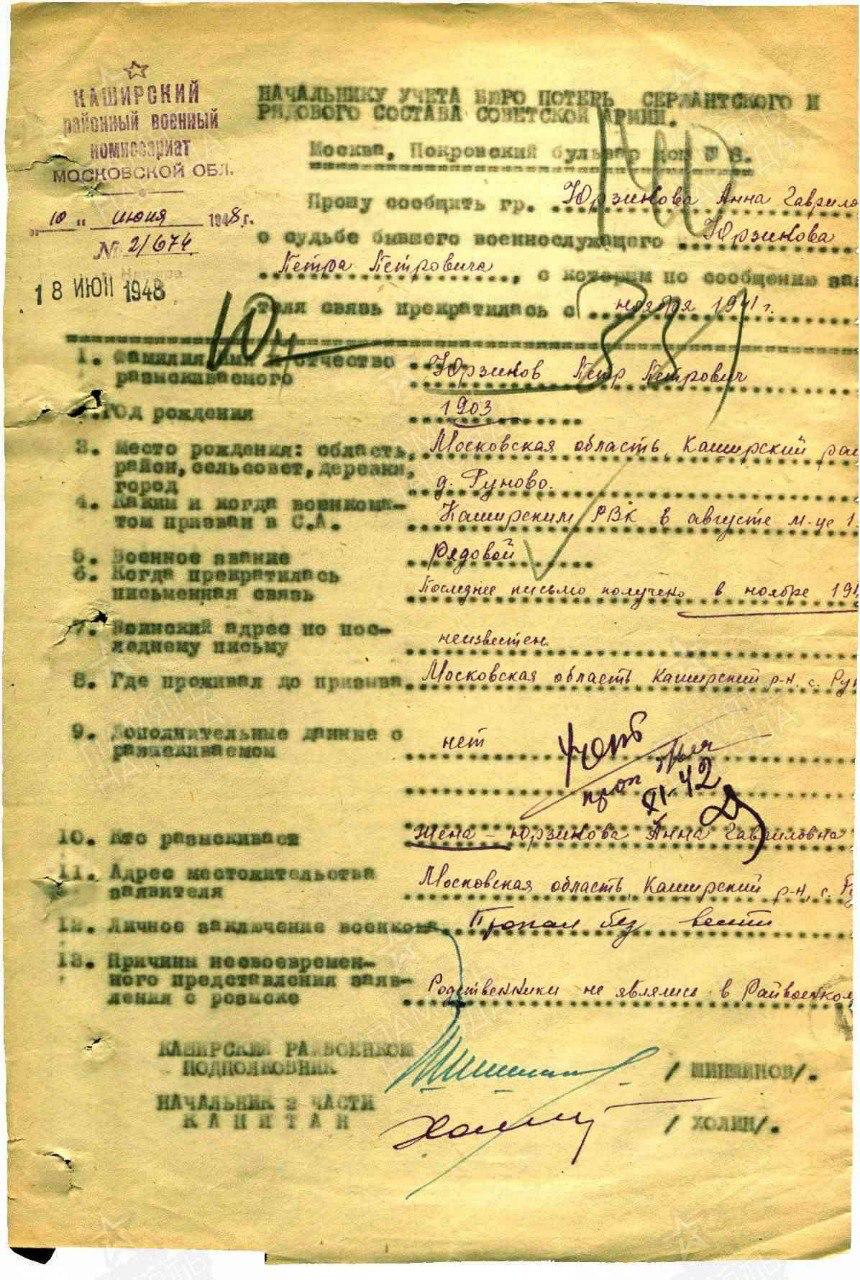 КАШИРСКИЙ
районный военный
комиссариат
МОСКОВСКОЙ ОБЛ.
"10" июня 1948 г.
№ 2/674
18 ИЮН 1948
НАЧАЛЬНИКУ УЧЕТА БЮРО ПОТЕРЬ СЕРЖАНТСКОГО И
РЯДОВОГО СОСТАВА СОВЕТСКОЙ АРМИИ.
Москва, Покровский бульвар дом № 3.
Прошу сообщить гр. Юрзинова Анна Гаврило
о судьбе бывшего военнослужащего Юрзинова
Петра Петровича, с которым по сообщению зая
теля связь прекратилась с ноября 1941 г.
1. Фамилия, имя и отчество разыскиваемого Юрзинов Петр Петрович
2. Год рождения 1903
3. Место рождения: область, Московская область, Каширский рай
район, сельсовет, деревня,
город д. Руново.
4. Каким и когда военкома-
том призван в С.А. Каширским РВК в августе м-це 1
5. Военное звание Рядовой
6. Когда прекратилась
письменная связь Последнее письмо получено в ноябре 194
7. Воинский адрес по пос-
леднему письму неизвестен
8. Где проживал до призыва Московская область Каширский р-н, с. Рун
9. Дополнительные данные о
разыскиваемом нет
Учтб
проп
XI-42
10. Кто разыскивает Жена - Юрзинова Анна Гавриловна
11. Адрес местожительства
заявителя Московская область, Каширский р-н, с. Ру
12. Личное заключение военкома Пропал без вести
13. Причины несвоевремен-
ного представления заяв-
ления о розыске Родственники не являлись в Райвоенком
КАШИРСКИЙ РАЙВОЕНКОМ
ПОДПОЛКОВНИК / ШИШИНОВ/.
НАЧАЛЬНИК 2 ЧАСТИ
КАПИТАН / ХОЛИН/.